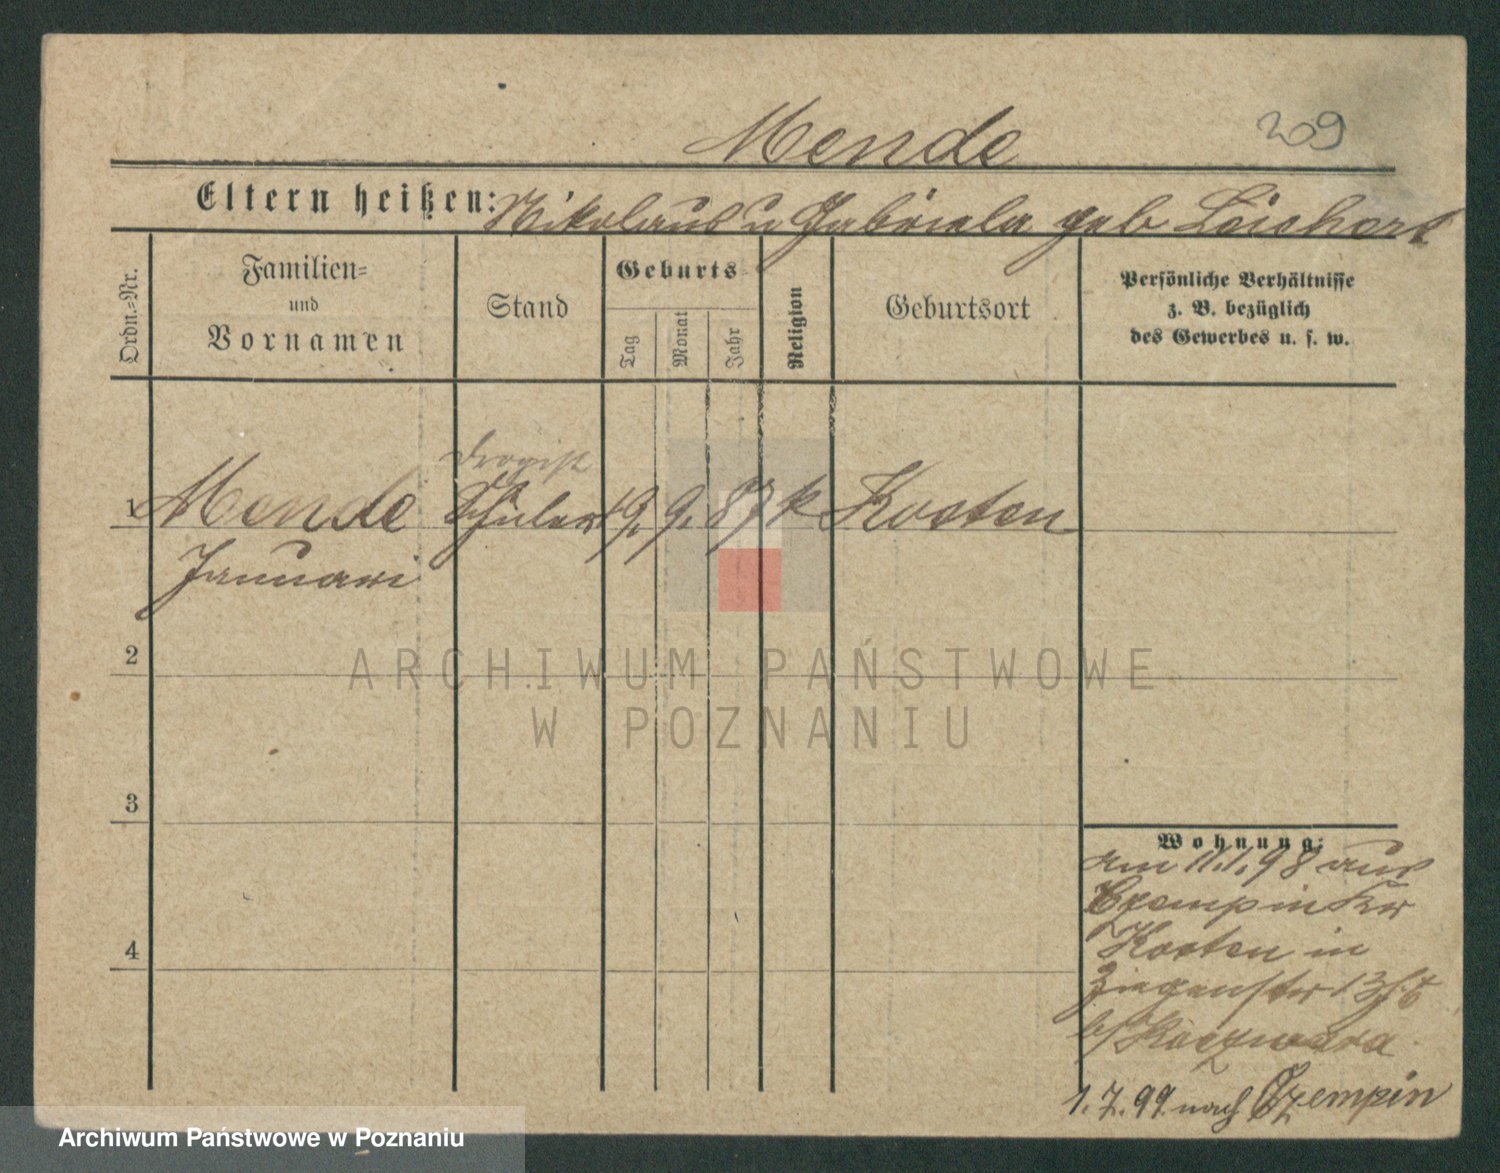 Mende
209
Eltern heißen: Nikolaus u Gabriela geb Leichert
Ordn.=Nr.
Familien=
und
Vornamen
Stand
Geburts
Tag
Monat
Jahr
Religion
Geburtsort
Persönliche Verhältnisse
z. B. bezüglich
des Gewerbes u. s. w.
Drogist
1 Mende Schüler 19. 9. 87 k Kosten
Januari
2
ARCHIWUM PAŃSTWOWE
W POZNANIU
3
Wohnung:
am 11.1.98 aus
Czempin Krs
4
Kosten in
Ziegenstr 13
b/
1.7.99 nach Czempin
Archiwum Państwowe w Poznaniu